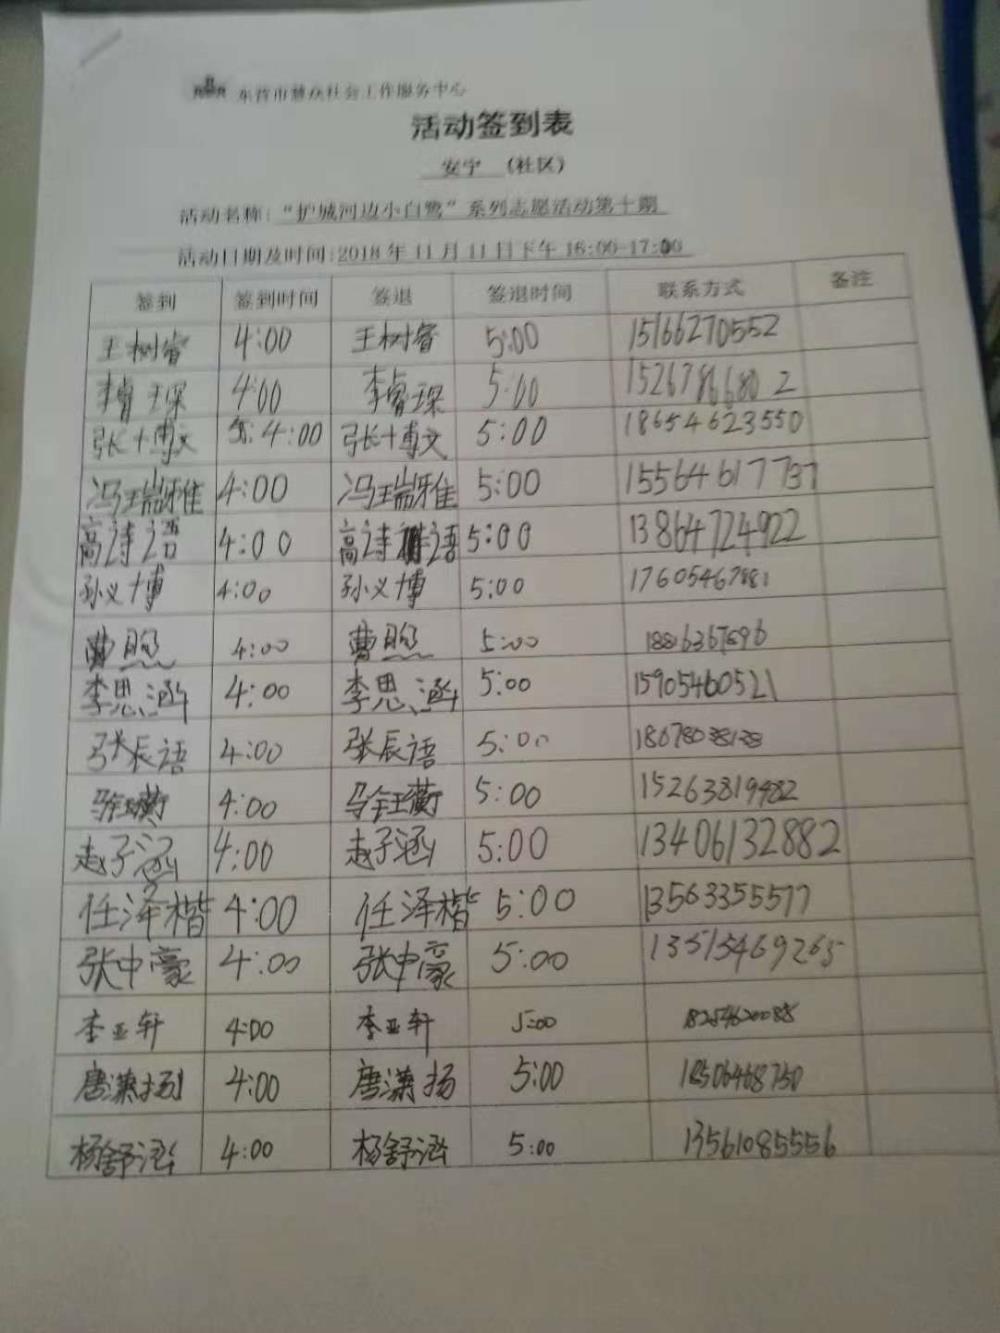 东营市慧众社会工作服务中心
活动签到表
安宁 (社区)
活动名称: “护城河边小白鹭”系列志愿活动第十期
活动日期及时间:2018年11月11日下午16:00-17:00
签到 签到时间 签退 签退时间 联系方式 备注
王树睿 4:00 王树睿 5:00 15166270552
李睿琛 4:00 李睿琛 5:00 15267866802
张博文 4:00 张博文 5:00 18654623550
冯瑞雅 4:00 冯瑞雅 5:00 15564617737
高诗语 4:00 高诗语 5:00 13864724922
孙义博 4:00 孙义博 5:00
曹煦 4:00 曹煦 5:00
李思涵 4:00 李思涵 5:00 15905460521
张辰语 4:00 张辰语 5:00
马钰蘅 4:00 马钰蘅 5:00 15263819482
赵子涵 4:00 赵子涵 5:00 13406132882
任泽楷 4:00 任泽楷 5:00 13563355577
张中豪 4:00 张中豪 5:00 13515469265
李亚轩 4:00 李亚轩 5:00
唐潇扬 4:00 唐潇扬 5:00
杨舒泓 4:00 杨舒泓 5:00 13561085556